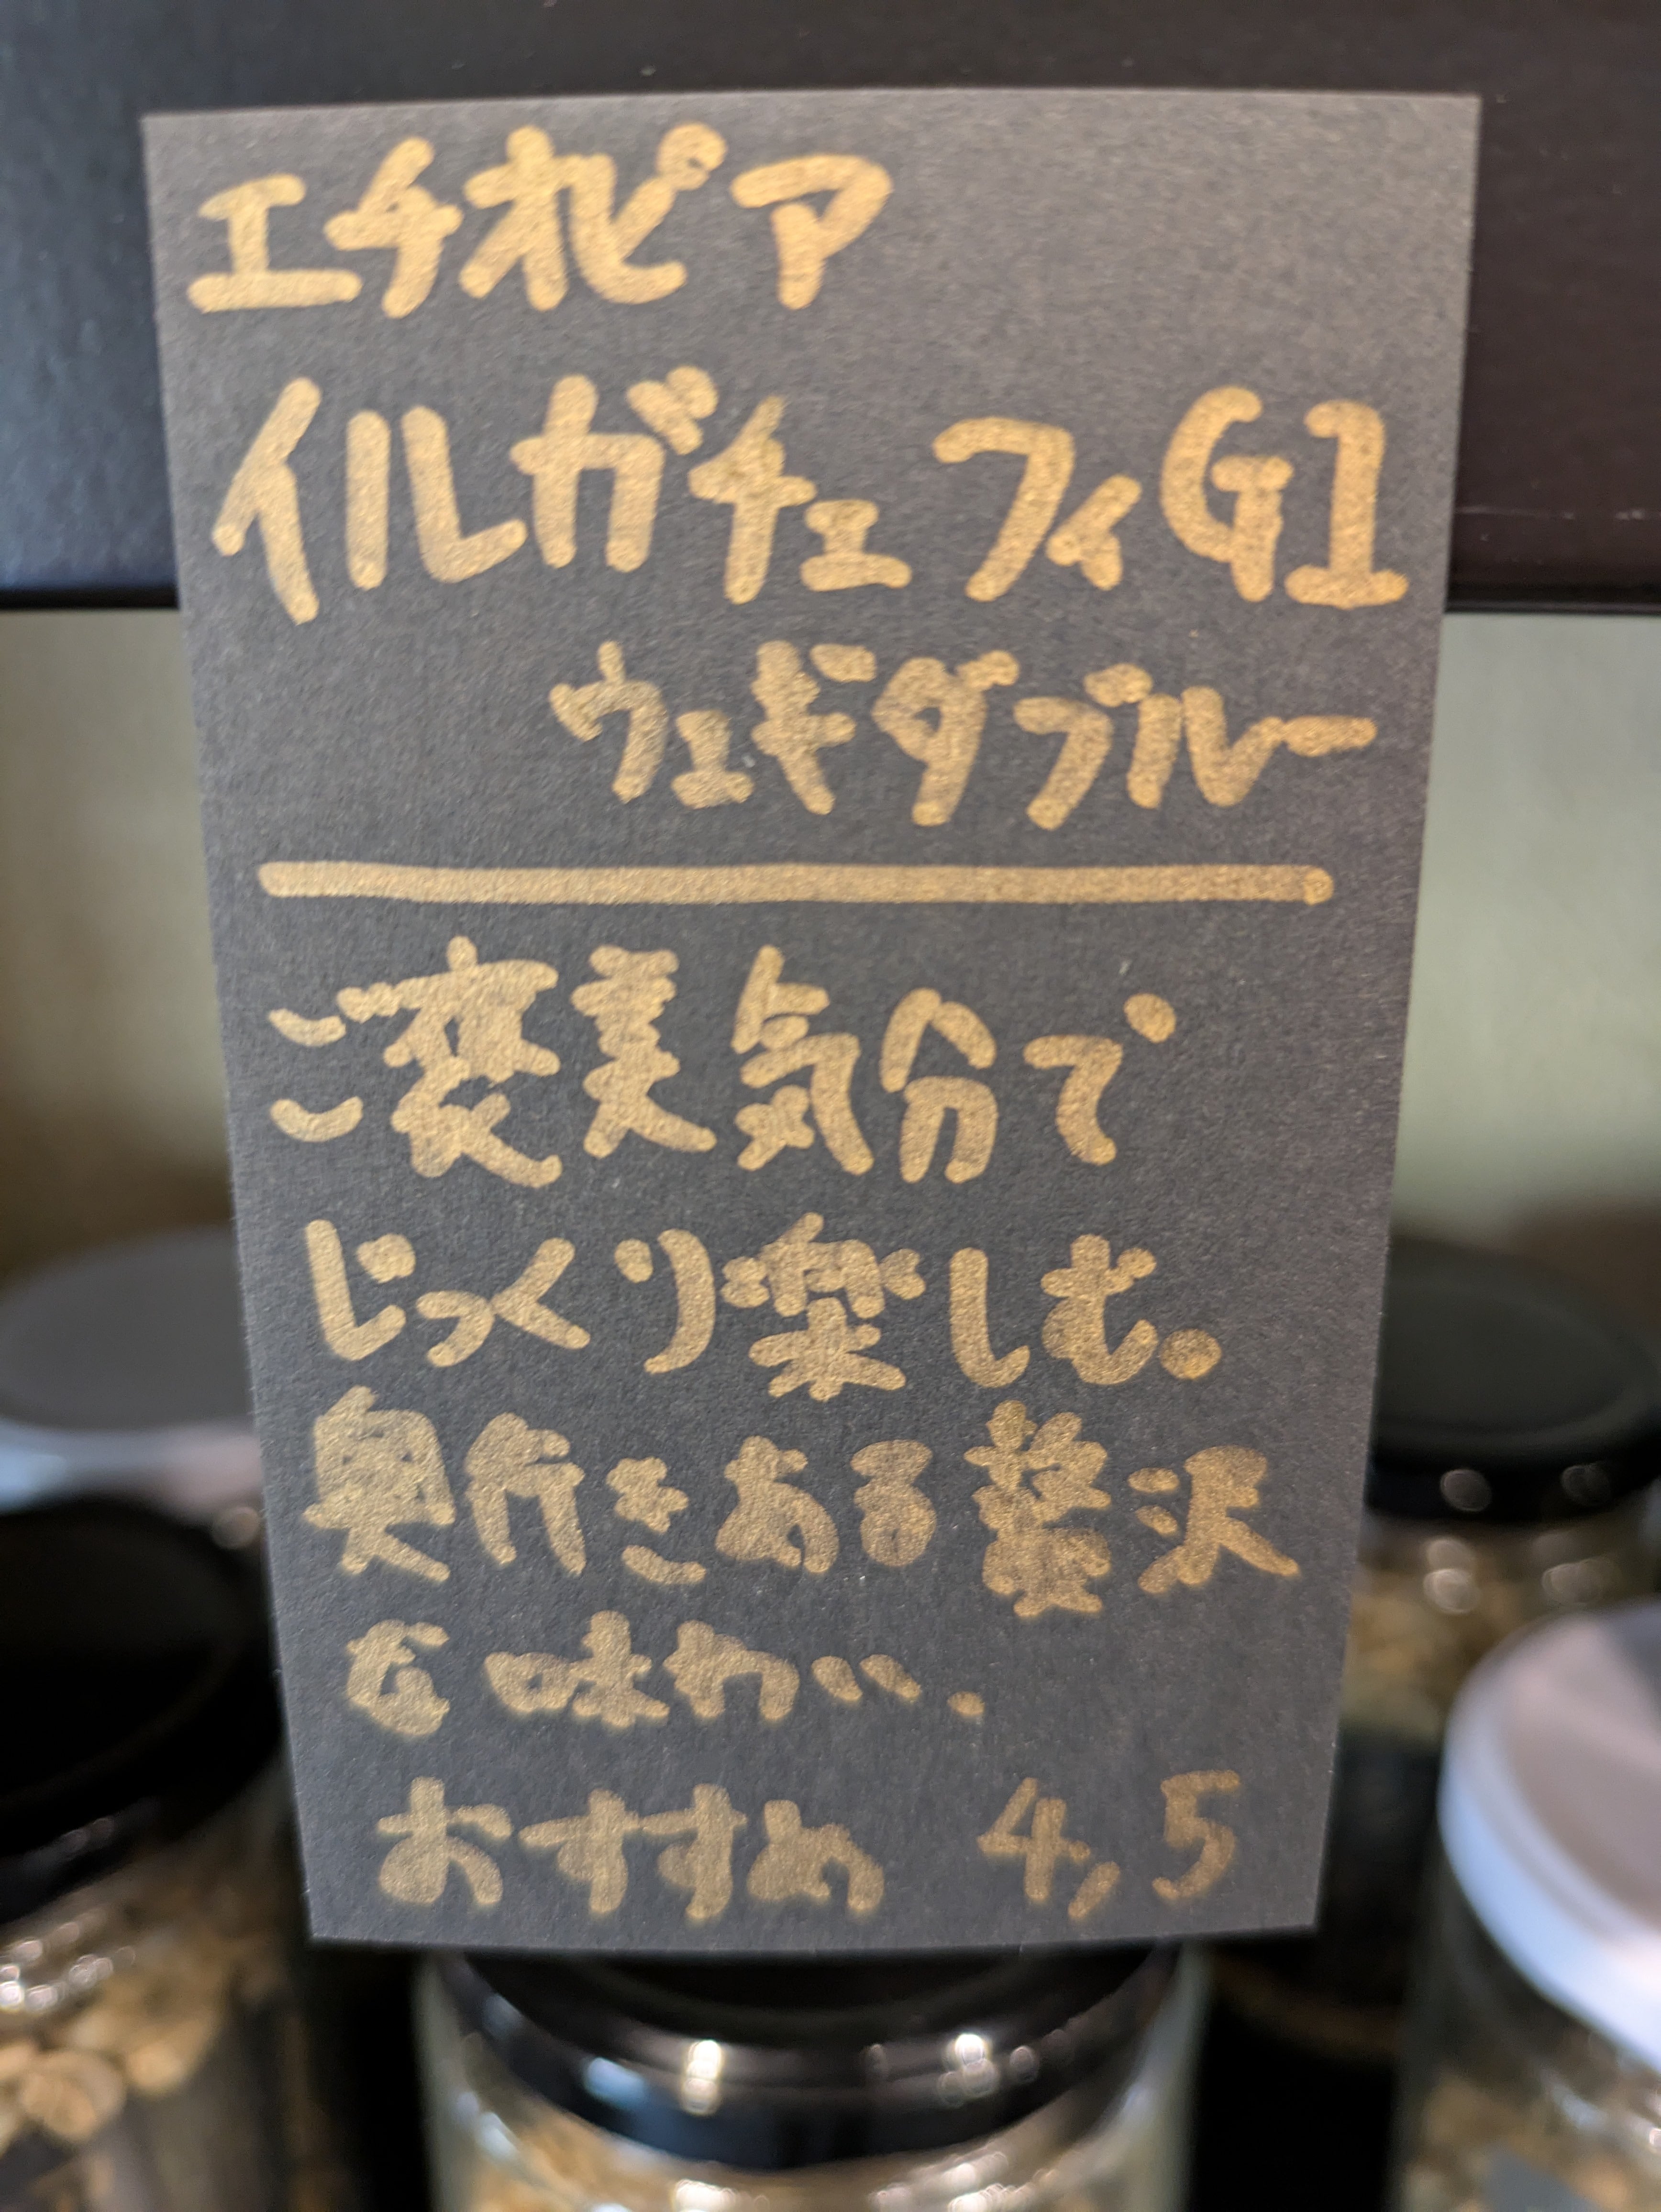 エチオピア
イルガチェフィG1
ウェギダブルー
ご褒美気分で
じっくり楽しむ。
奥行きある贅沢
な味わい.
おすすめ 4,5